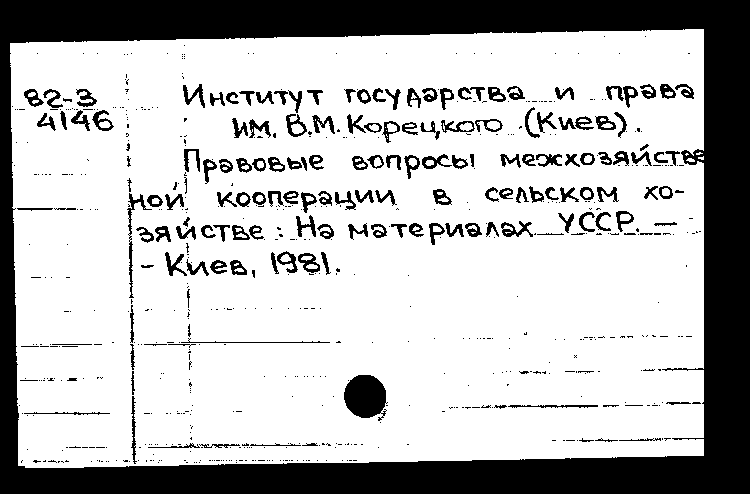 82-3
4146
Институт государства и права
им. В.М. Корецкого (Киев).
Правовые вопросы межхозяйстве
ной кооперации в сельском хо-
зяйстве : На материалах УССР. —
- Киев, 1981.